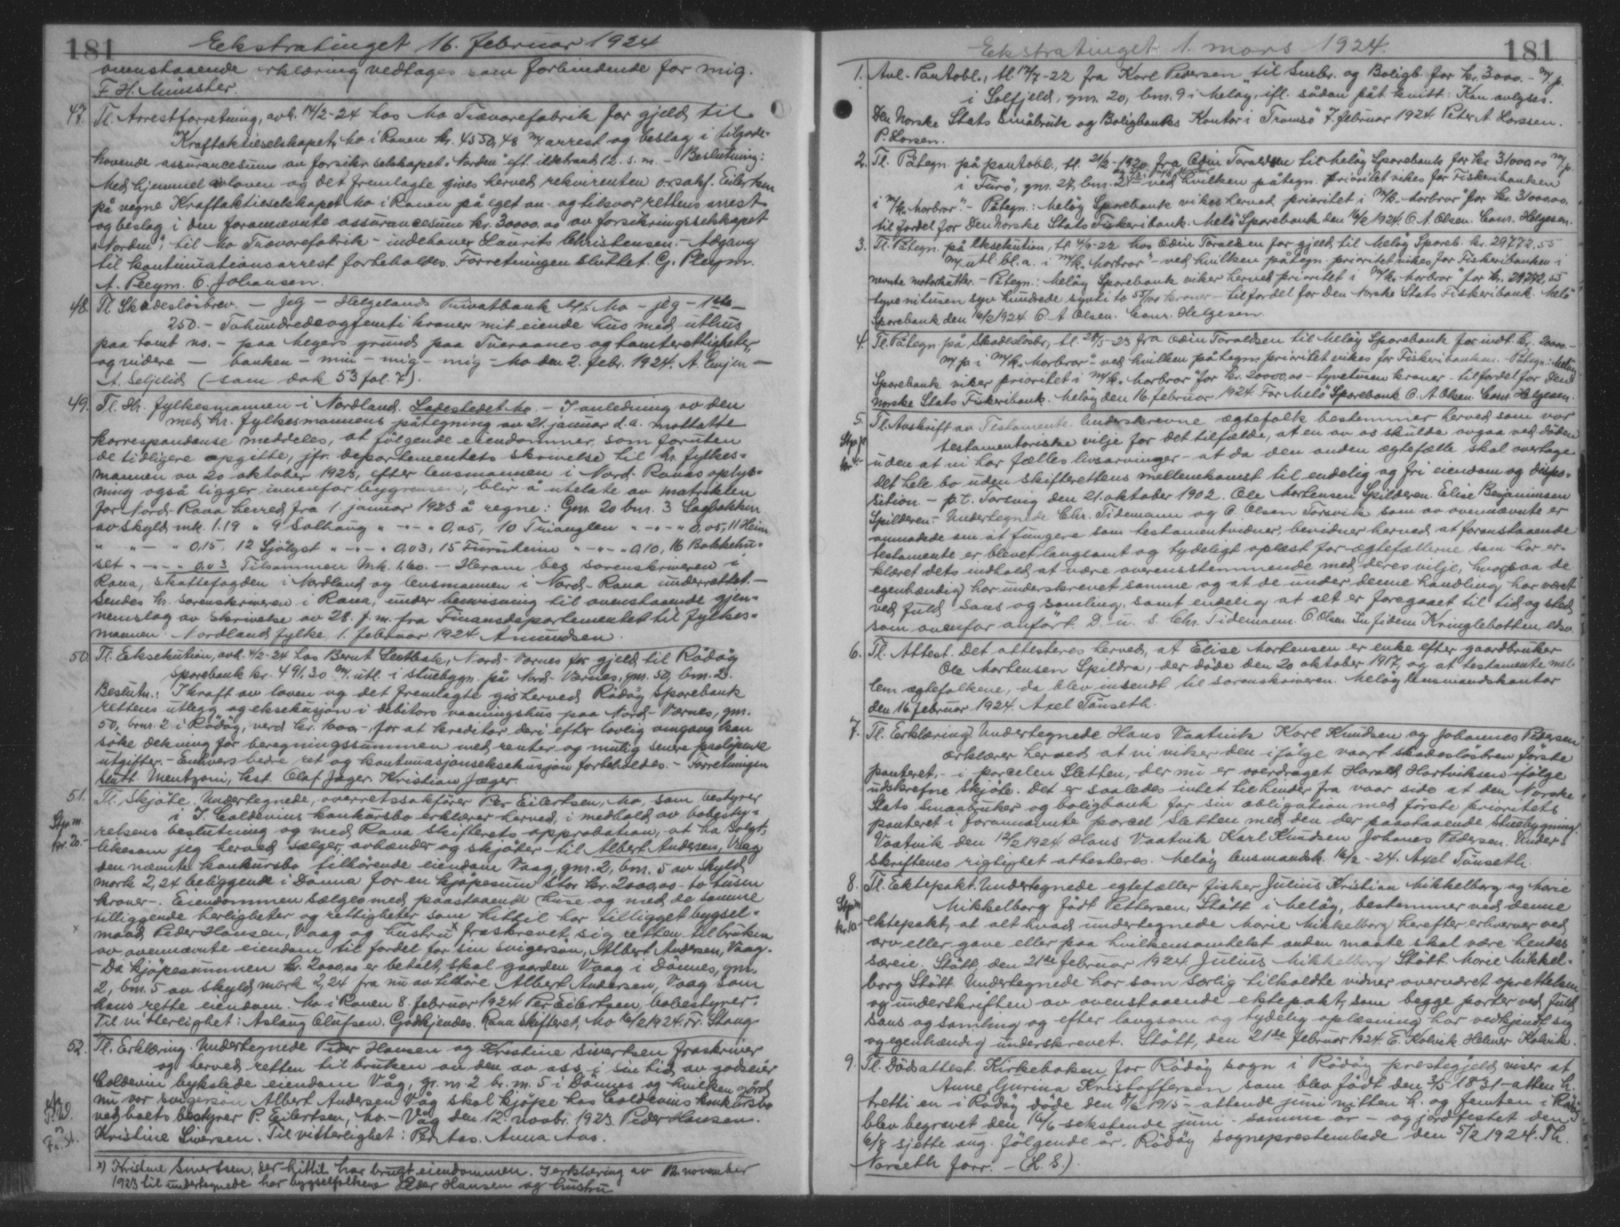 181
Ekstratinget 16. februar 1924
ovenstaaende erklæring vedtages som forbindende for mig.
F. H. Munster.
47. Tl. Arrestforretning, avh. 14/2-24 hos Mo Trævarefabrik for gjeld til
Kraftaktieselskapet, Mo i Ranen kr. 4550,48 m/ arrest og beslag i tilgode-
havende assurancesum av forsikr. selskapet "Norden" eft. ildebrand 12. s. m. - Beslutning:
Med hjemmel i loven og det fremlagte gives herved rekvirenten o.r.sakf. Eilertsen
på vegne Kraftaktieselskapet Mo i Ranen på eget an- og tilsvar rettens arrest
og beslag i den forannevnte assurancesum kr. 30000.00 av forsikringsselskapet
"Norden", til Mo Trævarefabrik - indehaver Laurits Christensen. - Adgang
til kontinuationsarrest forbeholdes. Forretningen sluttet. G. Pleym.
A. Pleym. O. Johansen.
48. Tl. Skadesløsbrev. - Jeg - Helgelands Privatbank A/S Mo - jeg - 1ste
250. - Tohundredeogfemti kroner mit eiende hus med uthus
paa tomt no. - paa Megers grund paa Tvaraanes og tomterettigheter
og videre - banken - min - mig - mig - Mo den 2. febr. 1924. A. Enjen -
A. Seljelid (- som dok 53 fol. 7).
49. Tl. Hr. fylkesmannen i Nordland. Ladestedet Mo. - I anledning av den
med hr. fylkesmannens påtegning av 21. januar d.a. mottatte
korrespondanse meddeles, at følgende eiendommer, som foruten
de tidligere opgitte, jfr. departementets skrivelse til hr. fylkes-
mannen av 20 oktober 1923, efter lensmannen i Nord-Ranas oplys-
ning også ligger innenfor bygrensen, blir å utelate av matrikelen
for Nord-Rana herred fra 1 januar 1923 å regne: Gnr. 20 bnr. 3 Sagbakken
av skyld mk. 1.19 " 9 Solhaug " -"- " 0,05, 10 Trianglen " -"- " 0,05, 11 Heim
" -"- " 0,15, 12 Sjølyst " -"- " 0,03, 15 Furuheim " -"- " 0,10, 16 Bakkehu-
set " -"- " 0,03 Tilsammen Mk. 1,60. - Herom beg sorenskriveren i
Rana, skattefogden i Nordland og lensmannen i Nord-Rana underrettet. -
Sendes hr. sorenskriveren i Rana, under henvisning til ovenstaaende gjen-
nemslag av skrivelse av 28. f. m. fra Finansdepartementet til fylkes-
mannen. Nordland fylke 1. februar 1924 Amundsen.
50. Tl. Eksekution, avh. 4/2-24 hos Bernt Sletbak, Nord-Værnes for gjeld til Rødøy
sparebank kr. 491.30 m/ utl. i stuebygn. på Nord-Værnes, gnr. 50, bnr. 2.
Beslutn.: I kraft av loven og det fremlagte gis herved Rødøy Sparebank
rettens utlegg og eksekusjon i debitors vaaningshus paa Nord-Værnes, gnr.
50, bnr. 2 i Rødøy, verd kr. 1000,- for at kreditor deri efter lovlig omgang kan
søke dekning for beregningssummen med renter og mulig senere paaløpende
utgifter. - Enhvers bedre ret og kontinuasjonseksekusjon forbeholdes. - Forretningen
slutt. Mentzoni, hst. Olaf Jæger. Kristian Jæger.
51. Tl. Skjøte. Undertegnede, overretssakfører Per Eilertsen, Mo, som bestyrer
Stp. m. kr. 20.-
i I. Coldevins konkursbo erklærer herved, i medhold av bobesty-
relsens beslutning og med Rana skifterets approbation, at ha solgt,
likesom jeg herved sælger, avhænder og skjøter til Albert Andersen, Vaag
den nævnte konkursbo tilhørende eiendom Vaag, gnr. 2, bnr. 5 av skyld
mark 2,24 beliggende i Dønna for en kjøpesum stor kr. 2000,00 - to tusen
kroner -. Eiendommen sælges med paastaaende huse og med de samme
tilliggende herligheter og rettigheter som hittil har tilligget bygsel-
mand Peder Hansen, Vaag og hustru x fraskrevet sig retten til bruken
av ovennævnte eiendom til fordel for sin svigersøn, Albert Andersen, Vaag.
- Da kjøpesummen kr. 2000,00 er betalt, skal gaarden Vaag i Dønnes, gnr.
2, bnr. 5 av skyld mark 2,24 fra nu av tilhøre Albert Andersen, Vaag som
hans rette eiendom. Mo i Ranen 8. februar 1924 Per Eilertsen bobestyrer.
Til vitterlighet: Aslaug Olufsen. Godkjendes. Rana skifteret, Mo 16/2 1924. Fr. Stang
52. Tl. Erklæring. Undertegnede Peder Hansen og Kristine Sivertsen fraskriver
og herved retten til bruken av den av oss i sin tid av godseier
Coldevin bykslede eiendom Våg, gr. nr 2 br. nr. 5 i Dønnes og hvilken
nu vor svigersøn Albert Andersen Våg skal kjøpe hos Coldevins konkursbo
ved boets bestyrer P. Eilertsen, Mo - Våg den 12. novbr. 1923 Peder Hansen.
Kristine Siversen. Til vitterlighet: P. Aas. Anna Aas.
x) Kristine Sivertsen, der hittil har brugt eiendommen. I erklæring av 12. november
1923 til undertegnede har bygselfolkene Peder Hansen og hustru
181
Ekstratinget 1. mars 1924.
1. Avl. Pantobl., tl. 17/7-22 fra Karl Pedersen til Småbr. og Boligb. for kr. 3000. - m/p.
i Solfjeld, gnr. 20, bnr. 9 i Meløy, ifl. sådan påt. kvitt: Kan avlyses.
Den Norske Stats Småbruk og Boligbanks Kontor i Tromsø 7. februar 1924 Peter A. Larssen.
P. Larsen.
2. Tl. Påtegn. på pantobl., tl. 21/2-1920 fra Odin Toraldsen til Meløy Sparebank for kr. 31000.00 m/p.
i Furø, gnr. 27, bnr. 2 ved hvilken påtegn. prioritet vikes for Fiskeribanken
i "M/k. Morbror" - Påtegn.: Meløy Sparebank viker herved prioritet i "M/k. Morbror" for kr. 31000.00.
til fordel for Den Norske Stats Fiskeribank. Melø Sparebank den 16/2 1924. O. A. Olsen. Conr. Helgesen.
3. Tl. Påtegn. på Eksekution, tl. 4/9-22 hos Odin Toraldsen for gjeld til Meløy Spareb. kr. 29772.55
m/ utl. bl.a. i "M/k. Morbror" ved hvilken påtegn. prioritet vikes for Fiskeribanken i
nevnte motorkutter. - Påtegn.: Meløy Sparebank viker herved prioritet i "M/k. Morbror" for kr. 29772,55
tyve ni tusen syv hundrede sytti to 55/100 kroner - til fordel for Den Norske Stats Fiskeribank. Melø
Sparebank den 16/2 1924 O. A. Olsen. Conr. Helgesen
4. Tl. Påtegn. på Skadesløsbr., tl. 25/5-23 fra Odin Toraldsen til Meløy Sparebank for indt. kr. 20000.-
m/p. i "M/k. Morbror" ved hvilken påtegn. prioritet vikes for Fiskeribanken. - Påtegn.: Meløy
Sparebank viker prioritet i "M/k. Morbror" for kr. 20000,00 - tyvetusen kroner - til fordel for Den
Norske Stats Fiskeribank. Meløy den 16 februar 1924 For Melø Sparebank O. A. Olsen. Conr. Helgesen.
5. Tl. Avskrift av Testamente. Underskrevne ægtefolk bestemmer herved som vor
testamentoriske vilje for det tilfælde, at en av os skulde avgaa ved døden
uden at vi har fælles livsarvinger - at da den anden ægtefælle skal overtage
det hele bo uden skifterettens mellemkomst til endelig og fri eiendom og dispo-
sition - p.t. Torsvig den 21. oktober 1902. Ole Mortensen Spilderen Elise Benjaminsen
Spilderen. - Undertegnede Chr. Tidemann og O. Olsen Torsvik som av ovennævnte er
anmodede om at fungere som testamentvidner, bevidner herved, at foranstaaende
testamente er blevet langsomt og tydeligt oplæst for ægtefællerne som har er-
klæret dets indhold at være overensstemmende med deres vilje, hvorpaa de
egenhændig har underskrevet samme og at de under denne handling har været
ved fuld sans og samling, samt endelig at alt er foregaaet til tid og sted
som ovenfor anført. D. u. s. Chr. Tidemann. O. Olsen. In fidem Kringlebotten edsv.
6. Tl. Attest. Det attesteres herved, at Elise Mortensen er enke efter gaardbruker
Ole Mortensen Spildra, der døde den 20 oktober 1917, og at testamente mel-
lem ægtefolkene, da blev insendt til sorenskriveren. Meløy lensmandskontor
den 16 februar 1924 Axel Tønseth.
7. Tl. Erklæring. Undertegnede Hans Vaatvik Karl Knudsen og Johannes Pedersen
erklærer herved at vi viker den i følge vaart skadesløsbrev første
panteret, - i parcelen Sletten, der nu er overdraget Harald Hartviksen ifølge
utskrefne skjøte. Det er saaledes intet til hinder fra vaar side at den Norske
Stats Smaabruker og boligbank far sin obligation med første prioritets
panteret i forannævnte parcel Sletten med den der paastaaende stuebygning.
Vaatvik den 12/2 1924 Hans Vaatvik Karl Knudsen Johanes Pedersen. Under-
skriftenes rigtighet attesteres. Meløy lensmandsk. 16/2-24. Axel Tønseth.
8. Tl. Ektepakt. Undertegnede egtefæller fisker Julius Kristian Mikkelborg og Marie
Mikkelborg født Pettersen, Støtt i Meløy, bestemmer ved denne
ektepakt, at alt hvad undertegnede Marie Mikkelborg herefter erhverver ved
arv eller gave eller paa hvilkensomhelst anden maate skal være hendes
særeie. Støtt, den 21de februar 1924. Julius Mikkelborg Støtt Marie Mikkel-
borg Støtt. Undertegnede har som særlig tilkaldte vidner overværet oprettelsen
og underskriften av ovenstaaende ektepakt, som begge parter ved fuld
sans og samling og efter langsom og tydelig oplæsning har vedkjendt sig
og egenhændig underskrevet. Støtt, den 21de februar 1924. E. Kolvik Helmer Kolvik.
9. Tl. Dødsattest. Kirkeboken for Rødøy sogn i Rødøy prestegjeld viser at
Anne Gurina Kristoffersen som blev født den 3/5 1831 - atten h.
tretti en i Rødøy døde den 8/6 1915 - attende juni nitten h. og femten i Rødøy
blev begravet den 16/6 sekstende juni - samme år - og jordfestet den
6/8 sjette aug. følgende år. Rødøy sogneprestembede den 5/2 1924. Th.
Norseth forr. - (L. S.)